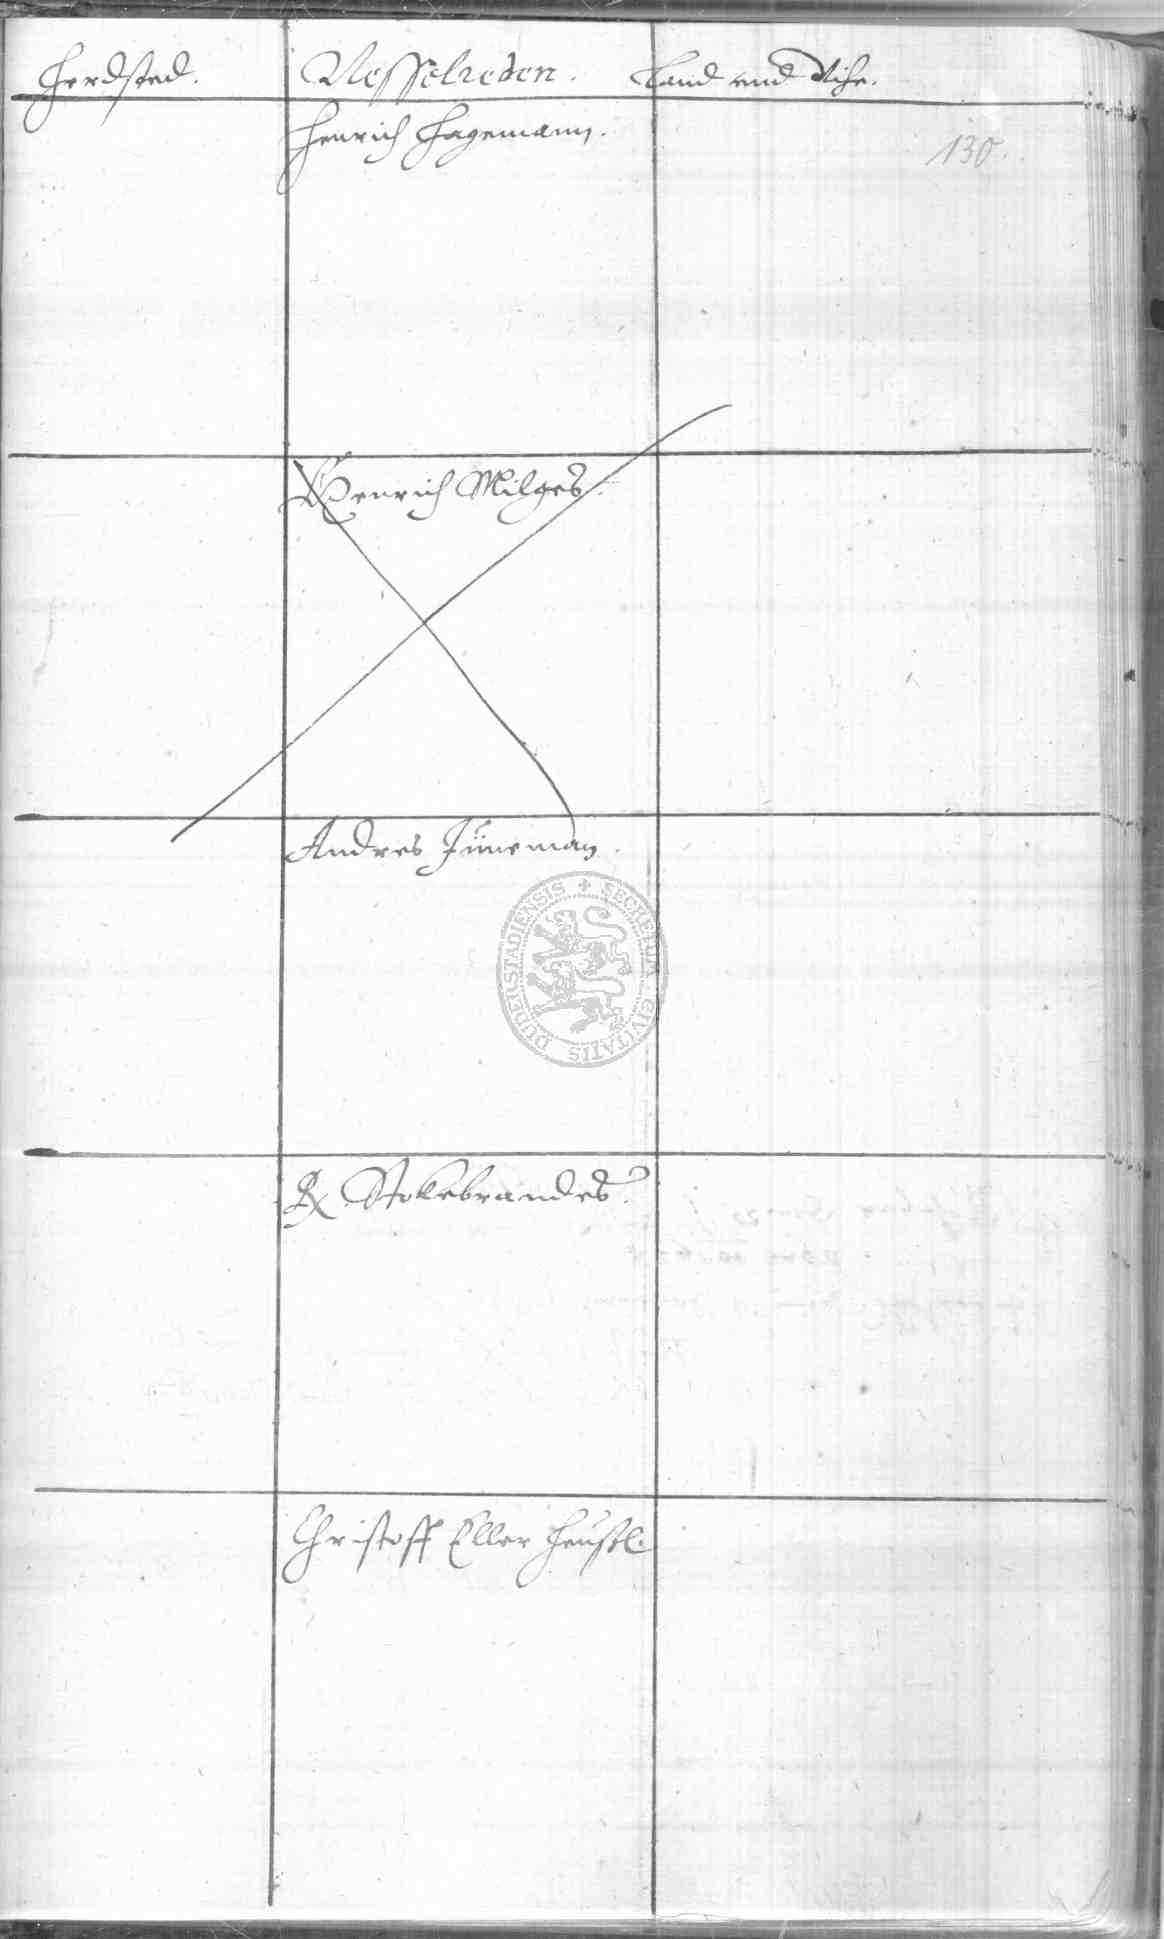 Herdsted. Nesselreden. Land und Vihe.
Henrich Hagemann.
130.
Henrich Milges.
Andres Jüneman.
Stokebrandes.
Christoff Eller Heußl.
SECRETUM CIVITATIS DUDERSTADIENSIS